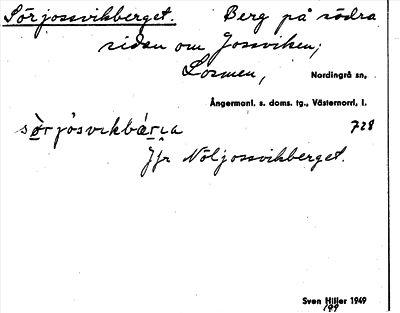 Sörjossvikberget. Berg på södra
sidan om Jossviken,
Losmen, Nordingrå sn,
Ångermanl. s. doms. tg., Västernorrl. l.
728
Jfr Nöljossvikberget.
Sven Hiller 1949
199